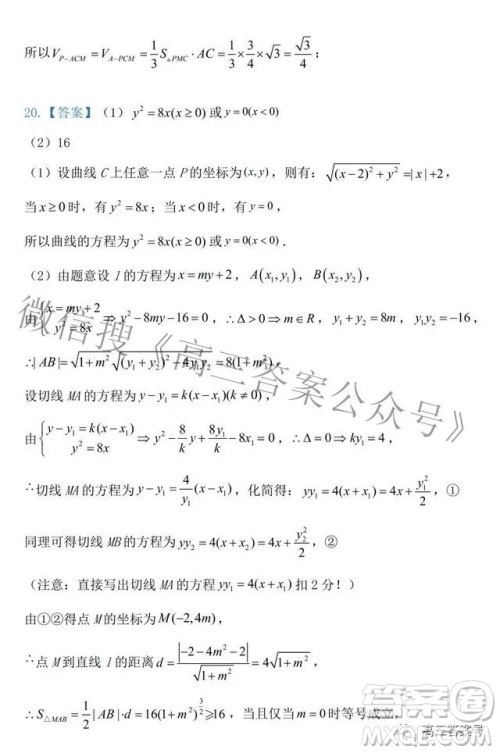 所以 V_{P-ACM} = V_{A-PCM} = 1/3 S_{△PMC} · AC = 1/3 × 3/4 × √3 = √3/4；
20.【答案】（1）y² = 8x(x ≥ 0) 或 y = 0(x < 0)
（2）16
（1）设曲线 C 上任意一点 P 的坐标为(x, y)，则有：√((x-2)² + y²) = |x| + 2，
当 x ≥ 0 时，有 y² = 8x；当 x < 0 时，有 y = 0.
所以曲线的方程为 y² = 8x(x ≥ 0) 或 y = 0(x < 0).
（2）由题意设 l 的方程为 x = my + 2，A(x₁, y₁)，B(x₂, y₂)，
由 {x = my + 2, y² = 8x ⇒ y² - 8my - 16 = 0，∴Δ > 0 ⇒ m ∈ R，y₁ + y₂ = 8m，y₁y₂ = -16，
∴|AB| = √(1 + m²) √((y₁ + y₂)² - 4y₁y₂ = 8(1 + m²)
设切线 MA 的方程为 y - y₁ = k(x - x₁)(k ≠ 0)，
由 {y - y₁ = k(x - x₁), y² = 8x ⇒ y² - 8/k y + 8y₁/k - 8x₁ = 0，∴Δ = 0 ⇒ ky₁ = 4，
∴切线 MA 的方程为 y - y₁ = 4/y₁ (x - x₁)，化简得：yy₁ = 4(x + x₁) = 4x + y₁²/2，①
同理可得切线 MB 的方程为 yy₂ = 4(x + x₂) = 4x + y₂²/2，②
（注意：直接写出切线 MA 的方程 yy₁ = 4(x + x₁) 扣 2 分！）
由①②得点 M 的坐标为 M(-2, 4m)，
∴点 M 到直线 l 的距离 d = |-2 - 4m² - 2|/√(1 + m²) = 4√(1 + m²)，
∴ S_{△MAB} = 1/2 |AB|·d = 16(1 + m²)^{3/2} ⩾ 16，当且仅当 m = 0 时等号成立，
微信搜《高三答案公众号》
高三答案号